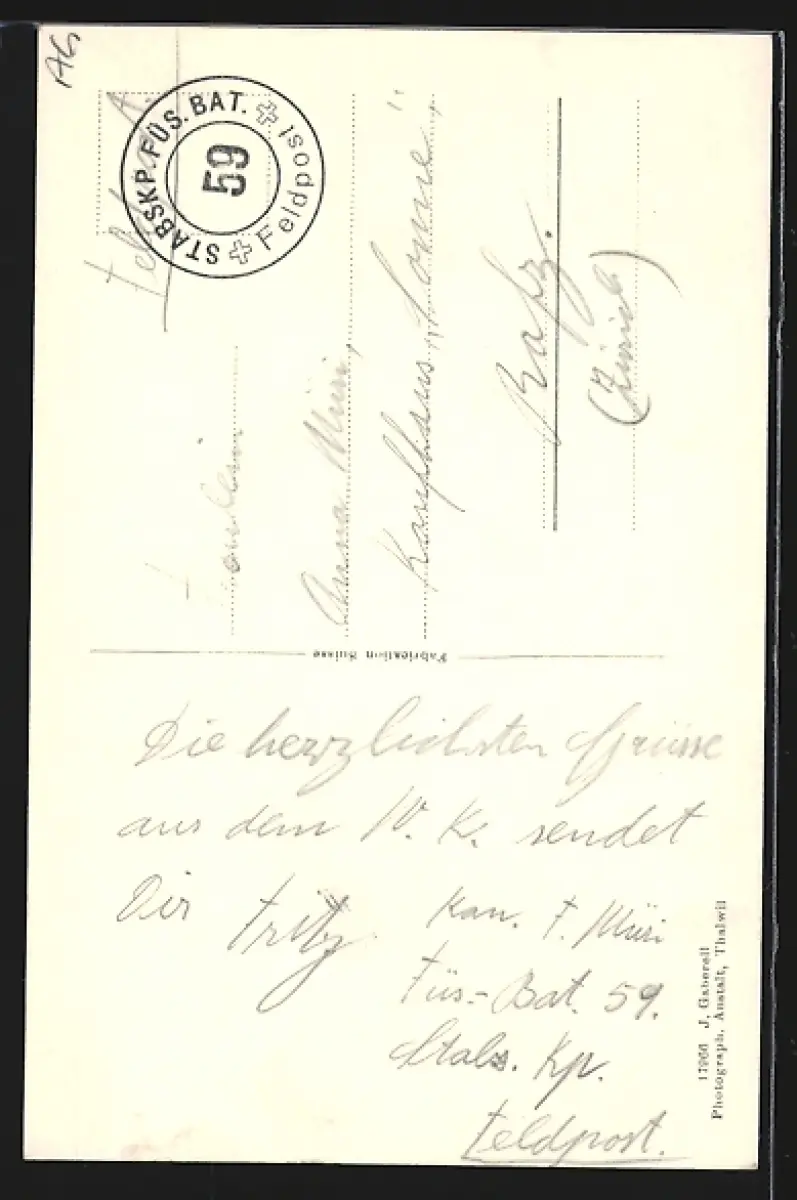 AG
STABSKP. FÜS. BAT.
59
Feldpost
Feldpost.
Fräulein
Anna Müri,
Kaufhaus „Sonne"
Rafz.
(Zürich)
Fabrication Suisse
Die herzlichsten Grüsse
aus dem W. K. sendet
Dir Fritz
Kan. F. Müri
Füs.- Bat. 59.
Stabs. Kp.
Feldpost.
17966 J. Gaberell
Photograph. Anstalt, Thalwil